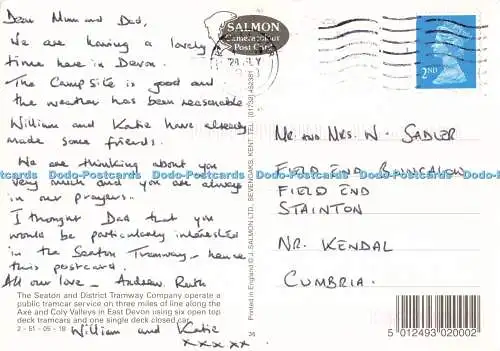 Dear Mum and Dad,
We are having a lovely
time here in Devon.
The Camp Site is good and
the weather has been reasonable
William and Katie have already
made some friends.
We are thinking about you
very much and you are always
in our prayers.
I thought Dad that you
would be particularly interested
in the Seaton Tramway – hence
this postcard.
All our love – Andrew, Ruth
William and Katie
xxxxx
The Seaton and District Tramway Company operate a
public tramcar service on three miles of line along the
Axe and Coly Valleys in East Devon using six open
deck tramcars and one single deck closed car.
2 - 51 - 05 - 18
SALMON
Cameracolour
Post Card
Printed in England © J. SALMON LTD., SEVENOAKS, KENT. TEL: (01732) 452381
36
2ND
MR AND MRS. W. SADLER
FIELD END BUNGALOW
FIELD END
STAINTON
NR. KENDAL
CUMBRIA.
5 012493 020002
Dodo-Postcards Dodo-Postcards Dodo-Postcards Dodo-Postcards